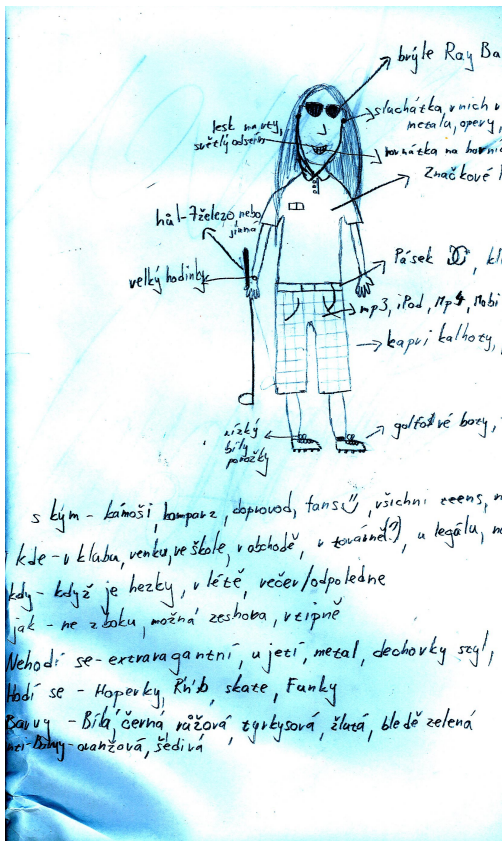 brýle Ray Ba
sluchátka, v nich v
metalu, opery,
lesk na rty,
světlý odstín
rovnátka na horní
Značkové
hůl-7železo, nebo
jinna
velký hodinky
Pásek
mp3, iPod, Mp4, Mobi
kapri kalhoty,
golfové boty,
nízký
bílý
ponožky
s kým - kámoši, komparz, doprovod, fans, všichni teens,
kde - v klubu, venku, ve škole, v obchodě, v továrně(?), u legálu,
kdy - když je hezky, v létě, večer/odpoledne
jak - ne z boku, možná zeshora, vtipně
Nehodí se - extravagantní, ujetí, metal, dechovky styl,
Hodí se - Hoperky, R'n'b, skate, Funky
Barvy - Bílá, černá, růžová, tyrkysová, žlutá, bledě zelená
oranžová, šedivá